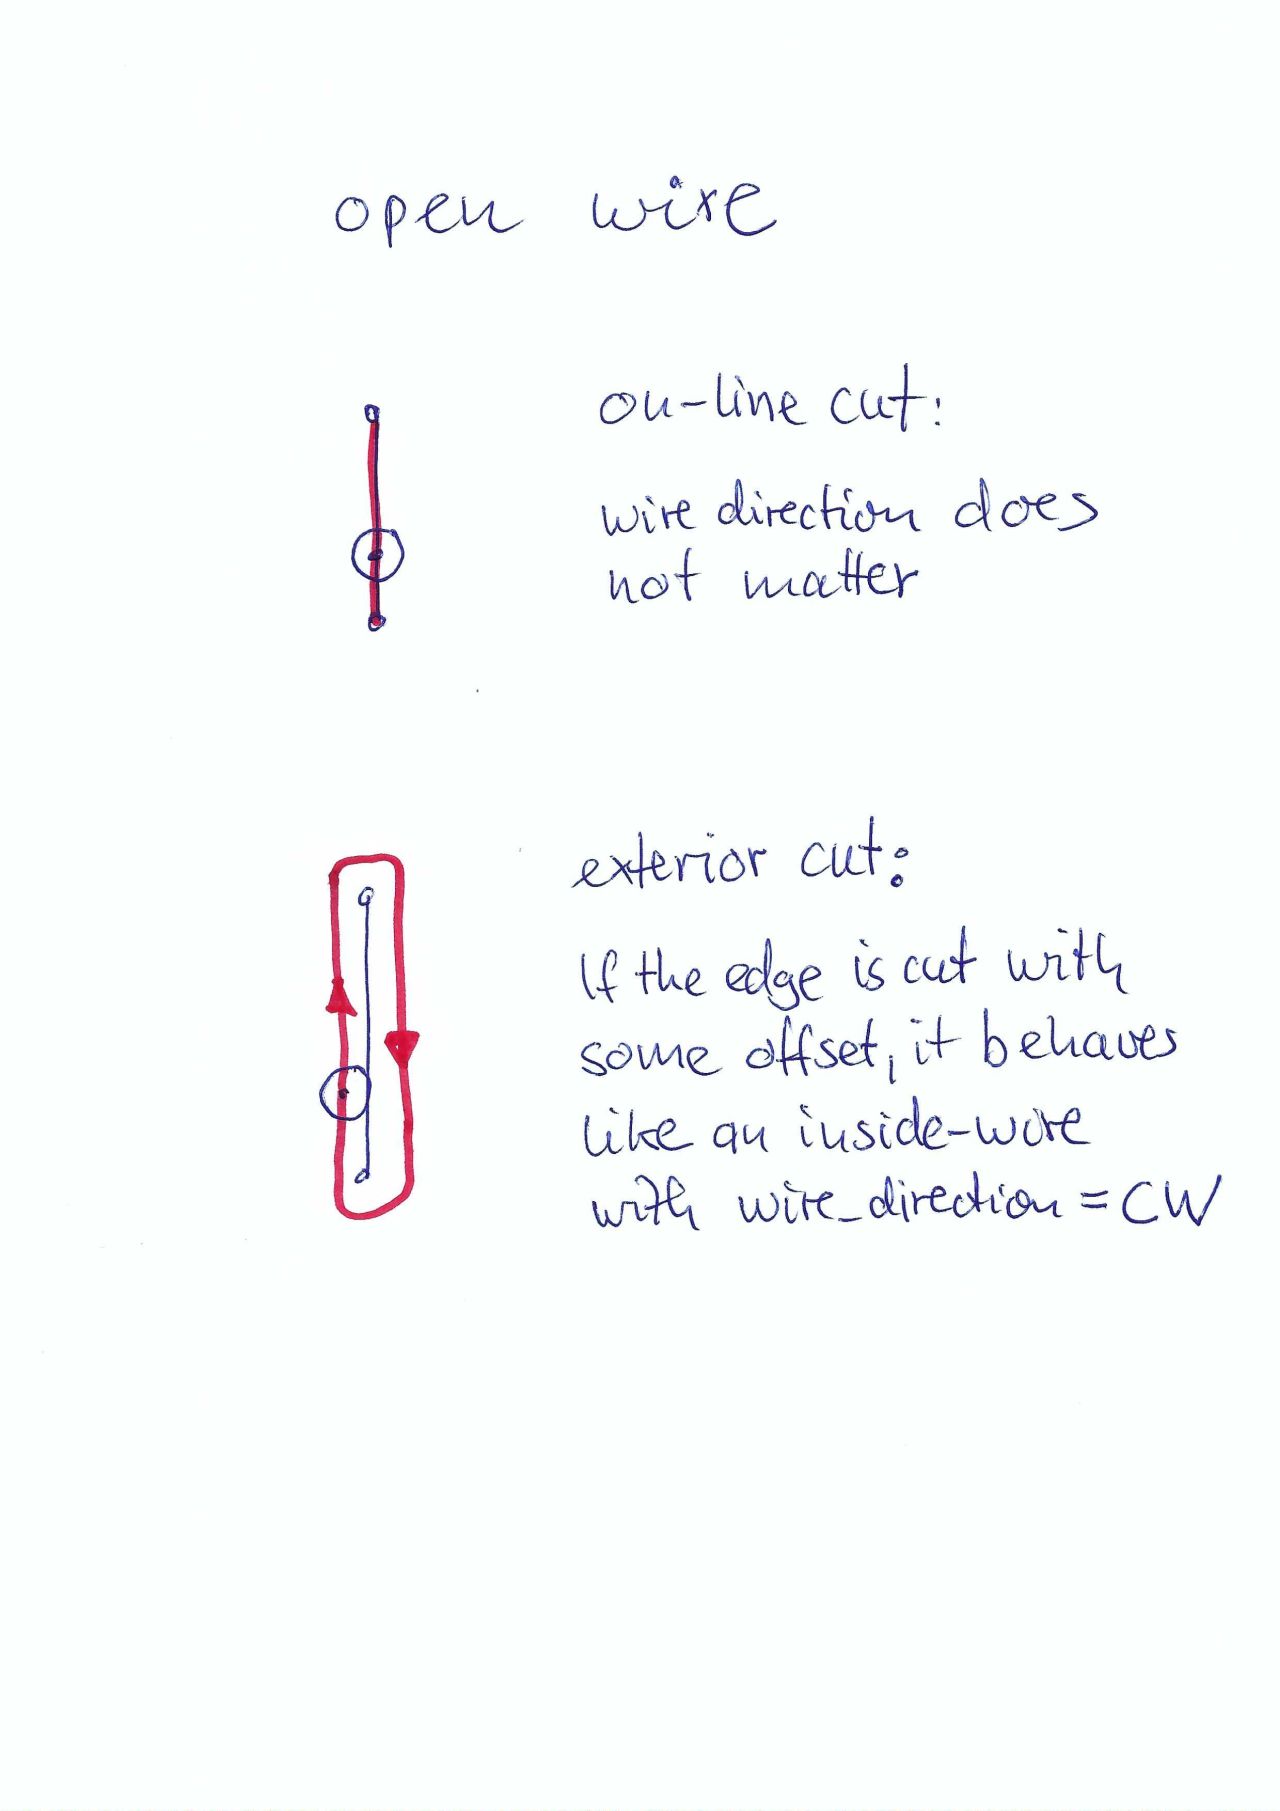 open wire
on-line cut:
wire direction does
not matter
exterior cut:
If the edge is cut with
some offset, it behaves
like an inside-wire
with wire_direction = CW